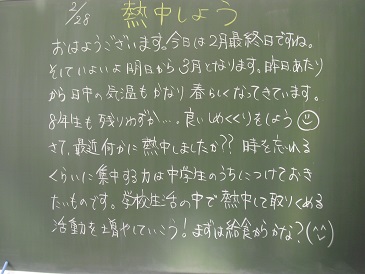 2/28
熱中しよう
おはようございます。今日は2月最終日ですね。
そしていよいよ明日から3月となります。昨日あたり
から日中の気温もかなり春らしくなってきています。
8年生も残りわずか…。良いしめくくりをしよう
さて、最近何かに熱中しましたか?? 時を忘れる
くらいに集中する力は中学生のうちにつけておき
たいものです。学校生活の中で熱中して取りくめる
活動を増やしていこう!まずは給食からかな?(^^)